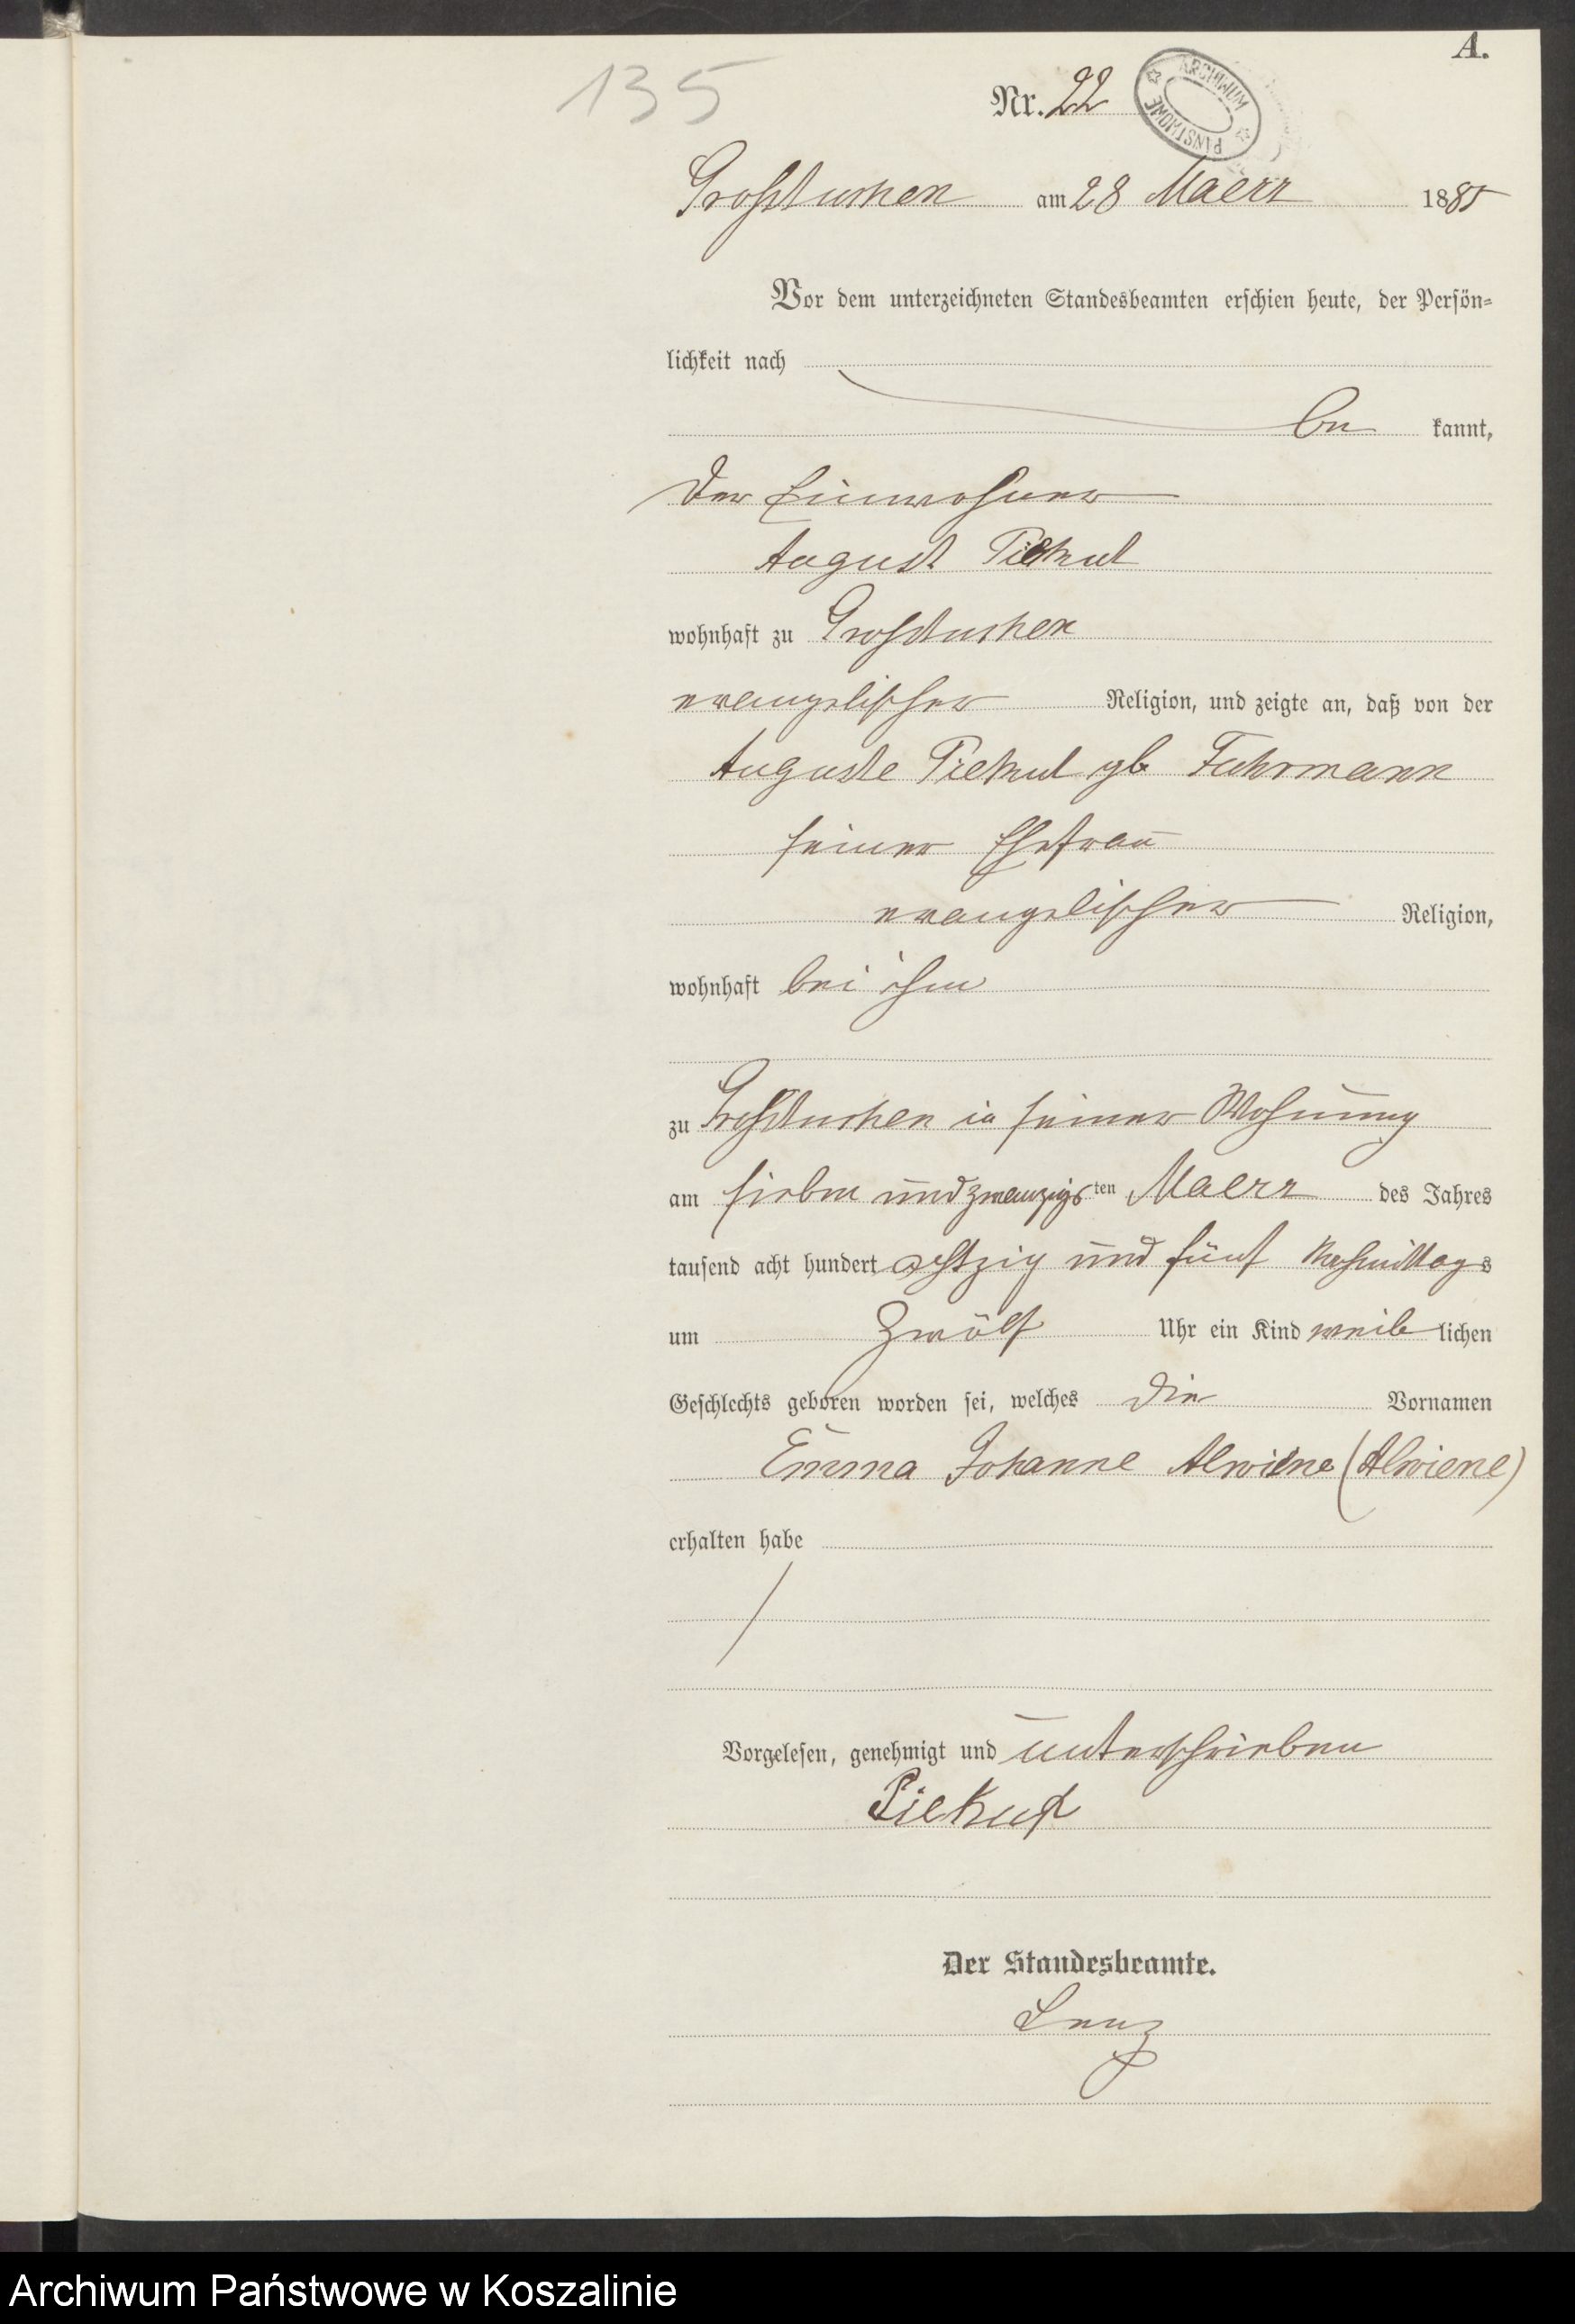 A.
135
Nr. 22
ARCHIWUM PAŃSTWOWE
Grosstuchen am 28 Maerz 1885
Vor dem unterzeichneten Standesbeamten erschien heute, der Persön-
lichkeit nach
be kannt,
der Einwohner
August Piekut
wohnhaft zu Grosstuchen
evangelischer Religion, und zeigte an, daß von der
Auguste Piekut gb Fuhrmann
seiner Ehefrau
evangelischer Religion,
wohnhaft bei ihm
zu Grosstuchen in seiner Wohnung
am sieben und zwanzigsten Maerz des Jahres
tausend acht hundert achtzig und fünf Nachmittags
um Zwölf Uhr ein Kind weib lichen
Geschlechts geboren worden sei, welches die Vornamen
Emma Johanne Alwiene (Alwiene)
erhalten habe
Vorgelesen, genehmigt und unterschrieben
Piekut
Der Standesbeamte.
Lenz
Archiwum Państwowe w Koszalinie